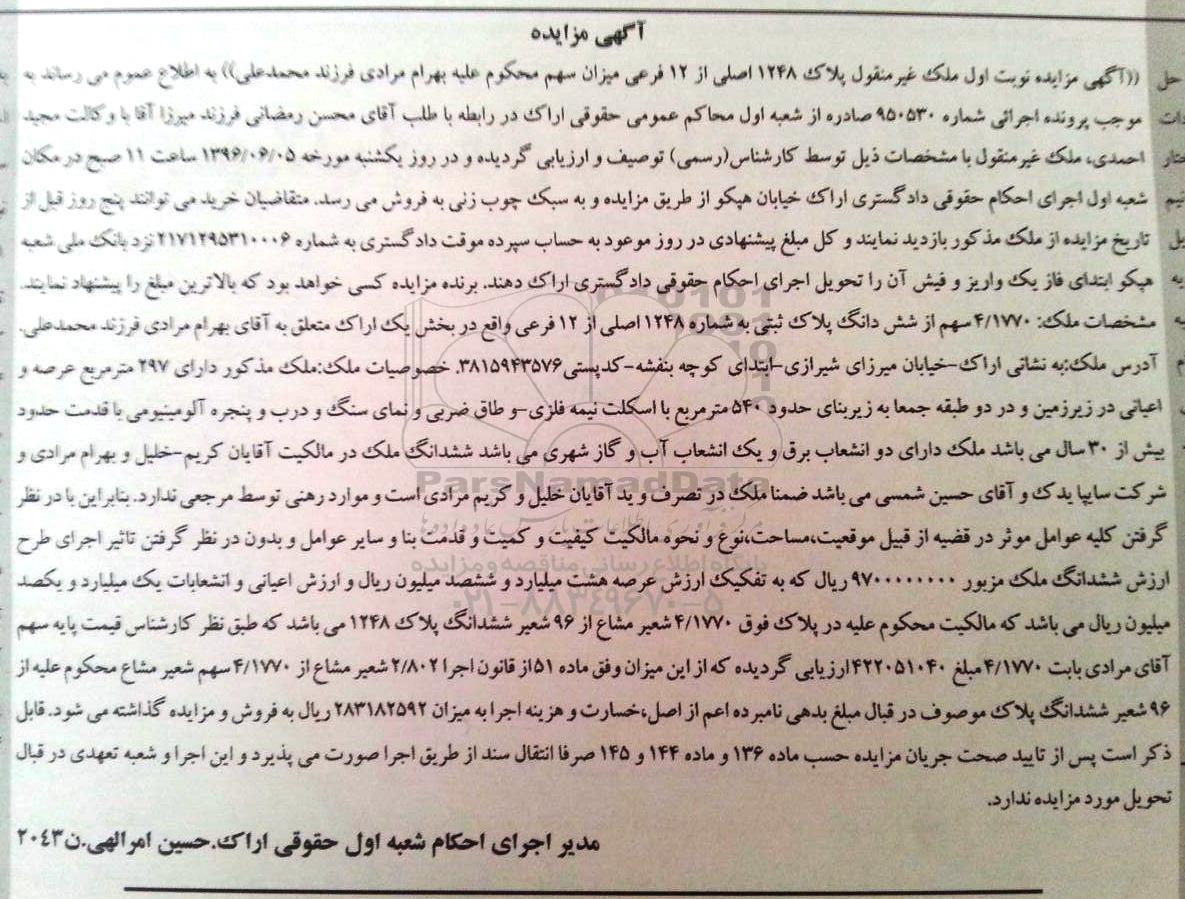 آگهی مزایده
((آگهی مزایده نوبت اول ملک غیرمنقول پلاک ۱۲۴۸ اصلی از ۱۲ فرعی میزان سهم محکوم علیه بهرام مرادی فرزند محمدعلی)) به اطلاع عموم می رساند به
موجب پرونده اجرائی شماره ۹۵۰۵۳۰ صادره از شعبه اول محاکم عمومی حقوقی اراک در رابطه با طلب آقای محسن رمضانی فرزند میرزا آقا با وکالت مجید
احمدی، ملک غیرمنقول با مشخصات ذیل توسط کارشناس(رسمی) توصیف و ارزیابی گردیده و در روز یکشنبه مورخه ۱۳۹۶/۰۶/۰۵ ساعت ۱۱ صبح در مکان
شعبه اول اجرای احکام حقوقی دادگستری اراک خیابان هپکو از طریق مزایده و به سبک چوب زنی به فروش می رسد. متقاضیان خرید می توانند پنج روز قبل از
تاریخ مزایده از ملک مذکور بازدید نمایند و کل مبلغ پیشنهادی در روز موعود به حساب سپرده موقت دادگستری به شماره ۲۱۷۱۲۹۵۳۱۰۰۰۶ نزد بانک ملی شعبه
هپکو ابتدای فاز یک واریز و فیش آن را تحویل اجرای احکام حقوقی دادگستری اراک دهند. برنده مزایده کسی خواهد بود که بالاترین مبلغ را پیشنهاد نمایند.
مشخصات ملک: ۴/۱۷۷۰ سهم از شش دانگ پلاک ثبتی به شماره ۱۲۴۸ اصلی از ۱۲ فرعی واقع در بخش یک اراک متعلق به آقای بهرام مرادی فرزند محمدعلی.
آدرس ملک:به نشانی اراک-خیابان میرزای شیرازی-ابتدای کوچه بنفشه-کدپستی۳۸۱۵۹۴۳۵۷۶. خصوصیات ملک:ملک مذکور دارای ۲۹۷ مترمربع عرصه و
اعیانی در زیرزمین و در دو طبقه جمعا به زیربنای حدود ۵۴۰ مترمربع با اسکلت نیمه فلزی-و طاق ضربی و نمای سنگ و درب و پنجره آلومینیومی با قدمت حدود
بیش از ۳۰ سال می باشد ملک دارای دو انشعاب برق و یک انشعاب آب و گاز شهری می باشد ششدانگ ملک در مالکیت آقایان کریم-خلیل و بهرام مرادی و
شرکت سایپا یدک و آقای حسین شمسی می باشد ضمنا ملک در تصرف و ید آقایان خلیل و کریم مرادی است و موارد رهنی توسط مرجعی ندارد. بنابراین با در نظر
گرفتن کلیه عوامل موثر در قضیه از قبیل موقعیت،مساحت،نوع و نحوه مالکیت کیفیت و کمیت و قدمت بنا و سایر عوامل و بدون در نظر گرفتن تاثیر اجرای طرح
ارزش ششدانگ ملک مزبور ۹۷۰۰۰۰۰۰۰۰ ریال که به تفکیک ارزش عرصه هشت میلیارد و ششصد میلیون ریال و ارزش اعیانی و انشعابات یک میلیارد و یکصد
میلیون ریال می باشد که مالکیت محکوم علیه در پلاک فوق ۴/۱۷۷۰ شعیر مشاع از ۹۶ شعیر ششدانگ پلاک ۱۲۴۸ می باشد که طبق نظر کارشناس قیمت پایه سهم
آقای مرادی بابت ۴/۱۷۷۰ مبلغ ۴۲۲۰۵۱۰۴۰ ارزیابی گردیده که از این میزان وفق ماده ۵۱ از قانون اجرا ۲/۸۰۲ شعیر مشاع از ۴/۱۷۷۰ سهم شعیر مشاع محکوم علیه از
۹۶ شعیر ششدانگ پلاک موصوف در قبال مبلغ بدهی نامبرده اعم از اصل،خسارت و هزینه اجرا به میزان ۲۸۳۱۸۲۵۹۲ ریال به فروش و مزایده گذاشته می شود. قابل
ذکر است پس از تایید صحت جریان مزایده حسب ماده ۱۳۶ و ماده ۱۴۴ و ۱۴۵ صرفا انتقال سند از طریق اجرا صورت می پذیرد و این اجرا و شعبه تعهدی در قبال
تحویل مورد مزایده ندارد.
مدیر اجرای احکام شعبه اول حقوقی اراک.حسین امرالهی.ن۲۰۴۳
ParsNamadData
پایگاه اطلاع رسانی مناقصه و مزایده
۰۲۱-۸۸۳۴۹۶۷۰-۵